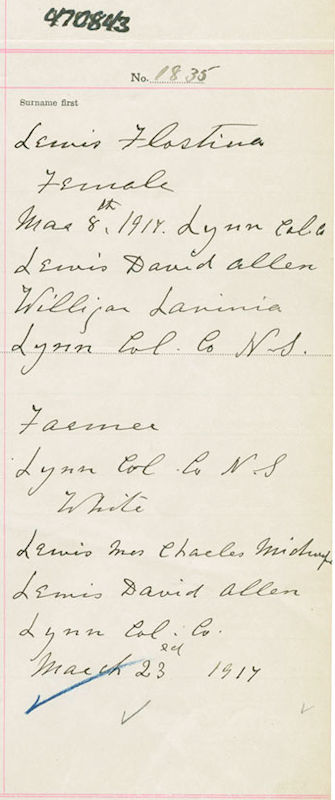 470843
No. 1835
Surname first
Lewis Flostina
Female
Mar 8th, 1917. Lynn Col. Co
Lewis David Allen
Willigar Lavinia
Lynn Col. Co N.S.
Farmer
Lynn Col. Co N S
White
Lewis Mrs Charles Midwife
Lewis David Allen
Lynn Col. Co.
March 23rd 1917